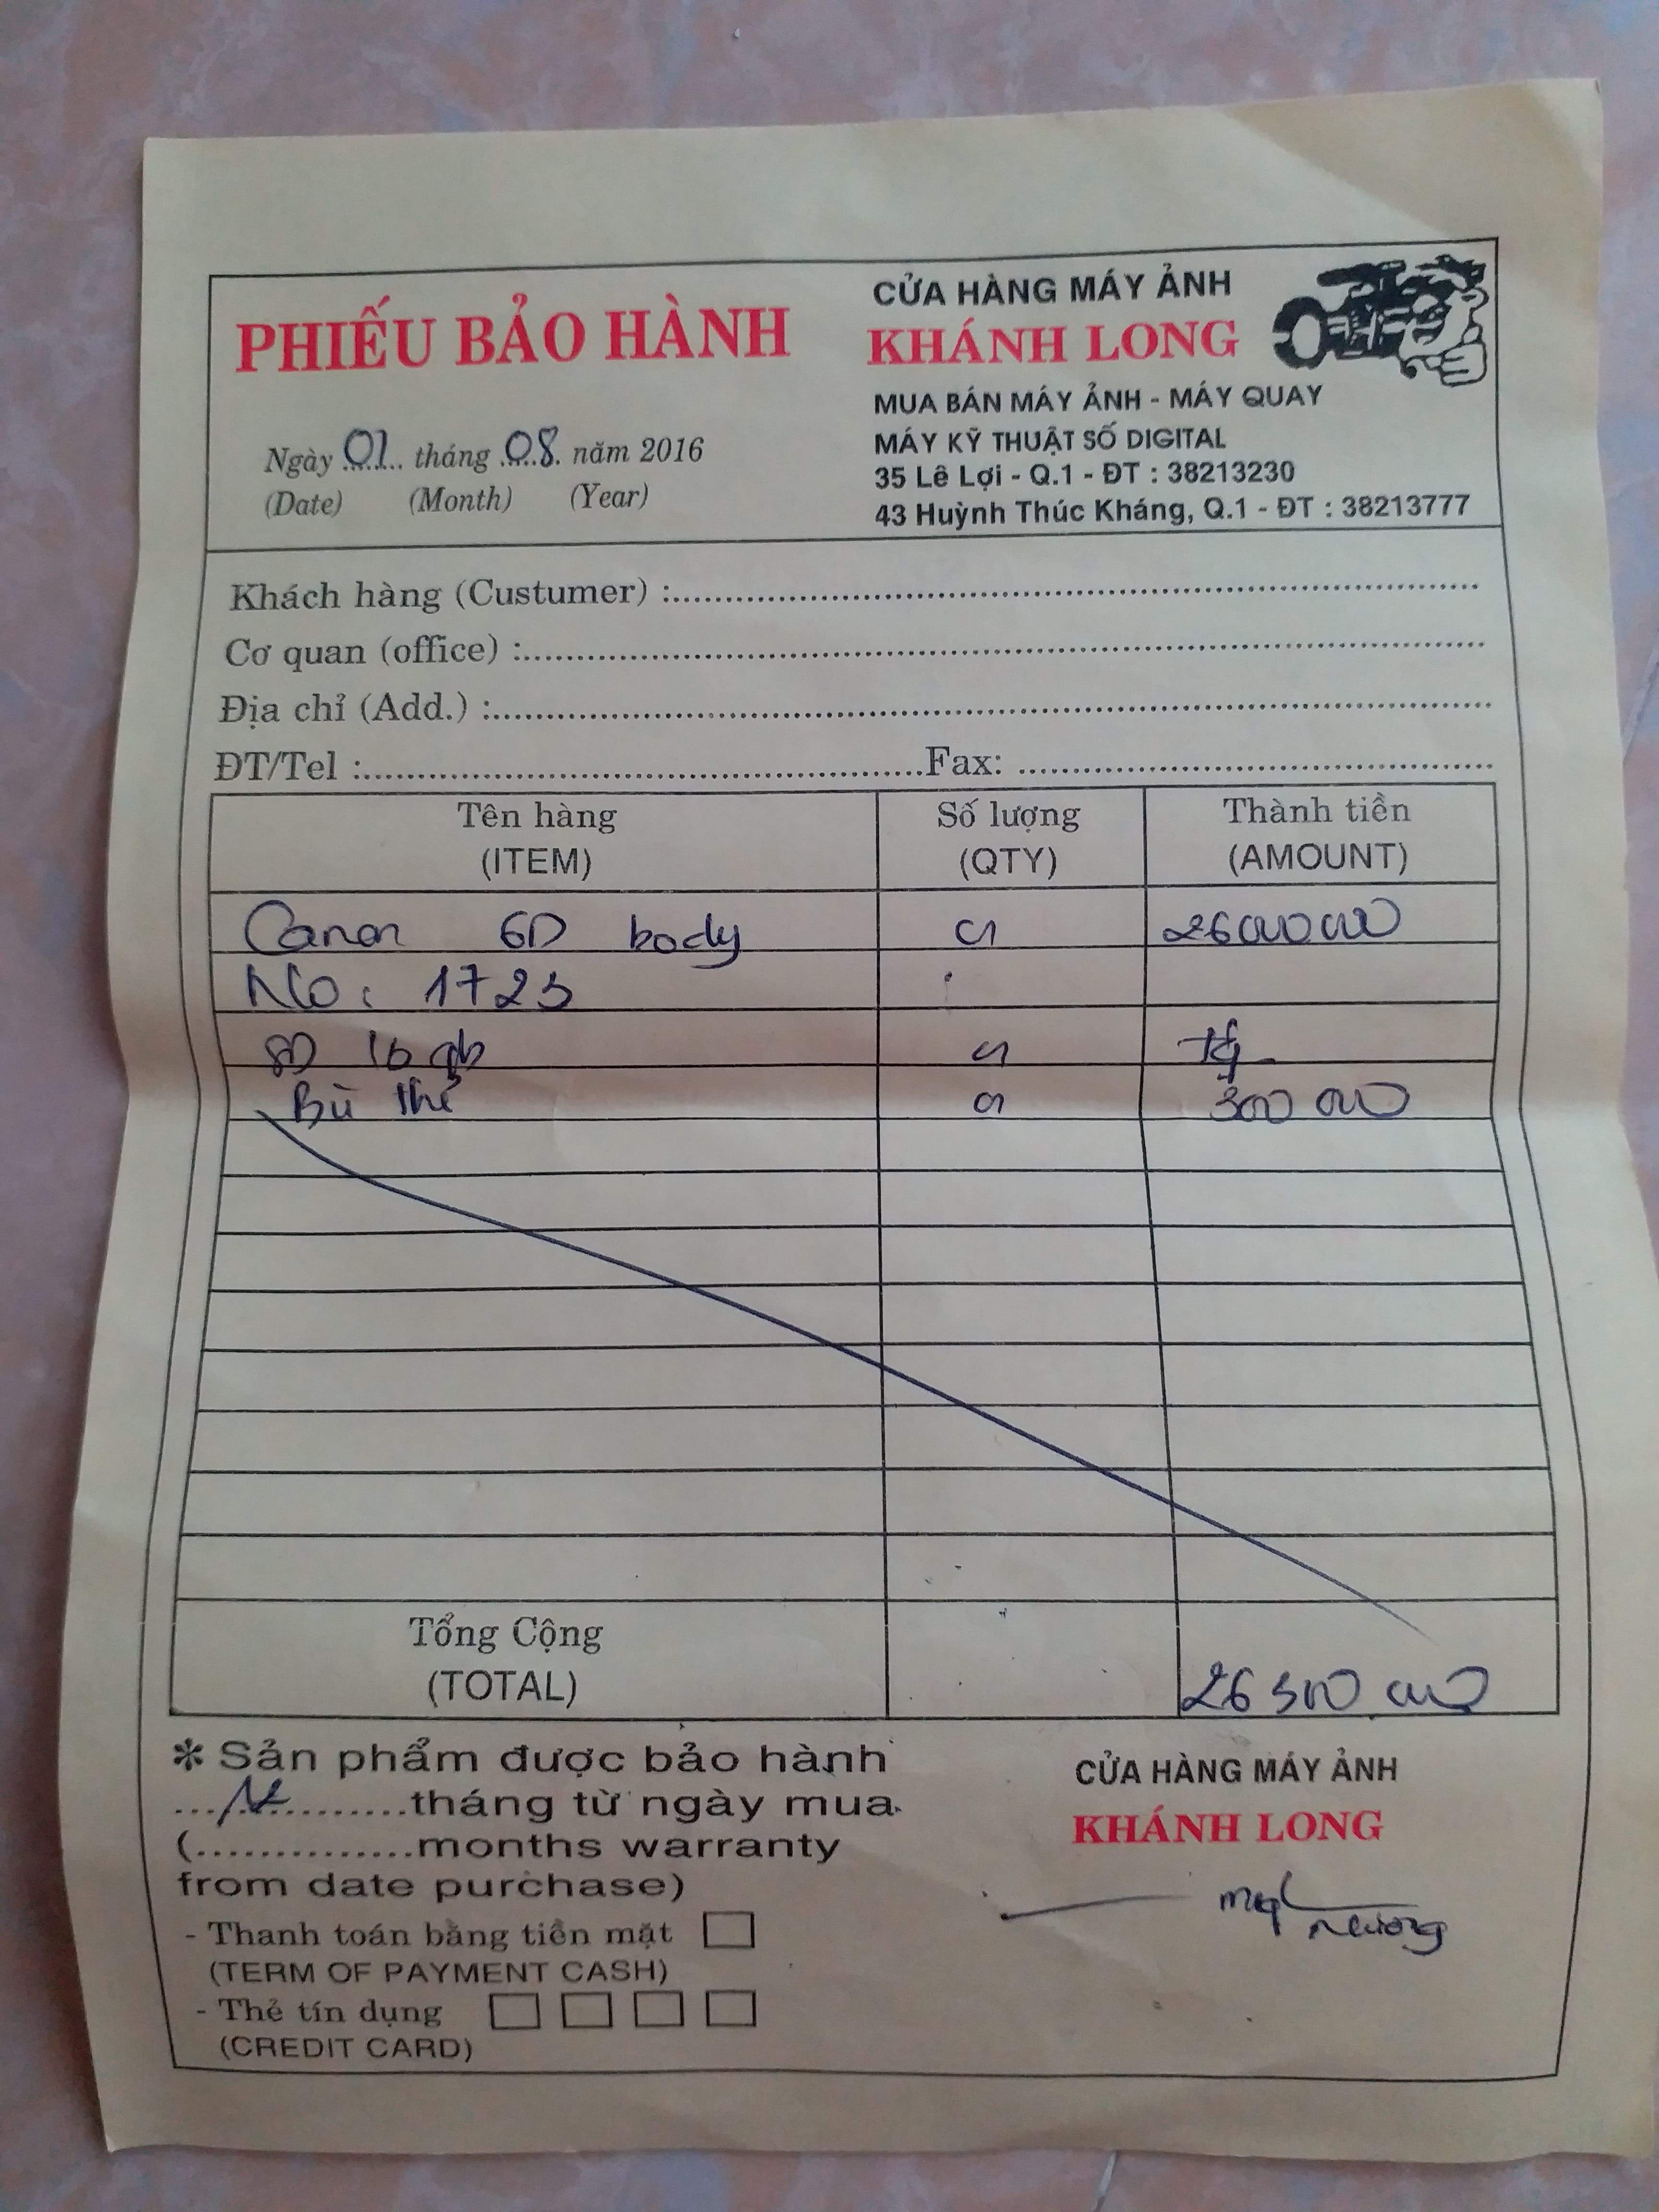 PHIẾU BẢO HÀNH
Ngày 01 tháng 08 năm 2016
(Date) (Month) (Year)
CỬA HÀNG MÁY ẢNH
KHÁNH LONG
MUA BÁN MÁY ẢNH - MÁY QUAY
MÁY KỸ THUẬT SỐ DIGITAL
35 Lê Lợi - Q.1 - ĐT : 38213230
43 Huỳnh Thúc Kháng, Q.1 - ĐT : 38213777
Khách hàng (Custumer) :
Cơ quan (office) :
Địa chỉ (Add.) :
ĐT/Tel : Fax:
Tên hàng Số lượng Thành tiền
(ITEM) (QTY) (AMOUNT)
Canon 6D body 01 26000000
No: 1723
SD 16 gb 01
Bù thẻ 01 300 000
Tổng Cộng
(TOTAL) 26 300 000
* Sản phẩm được bảo hành
tháng từ ngày mua
(..............months warranty
from date purchase)
- Thanh toán bằng tiền mặt
(TERM OF PAYMENT CASH)
- Thẻ tín dụng
(CREDIT CARD)
CỬA HÀNG MÁY ẢNH
KHÁNH LONG